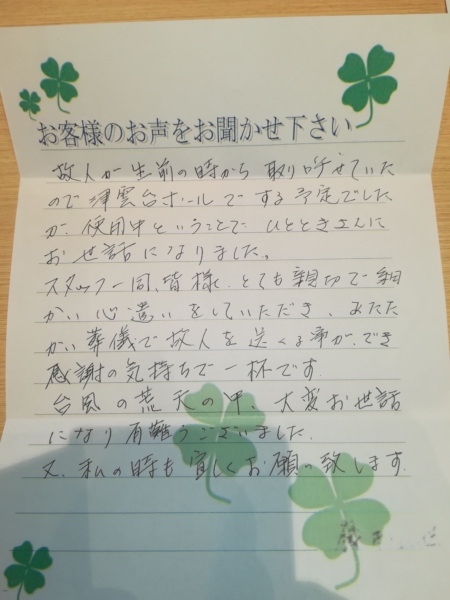 お客様のお声をお聞かせ下さい
故人が生前の時から取り寄せていた
ので津雲台ホールでする予定でした
が、使用中ということでひとときさんに
お世話になりました。
スタッフ一同、皆様、とても親切で細
かい心遣いをしていただき、あたた
かい葬儀で故人を送くる事ができ
感謝の気持ちで一杯です。
台風の荒天の中、大変お世話
になり有難うございました。
又、私の時も宜しくお願い致します。